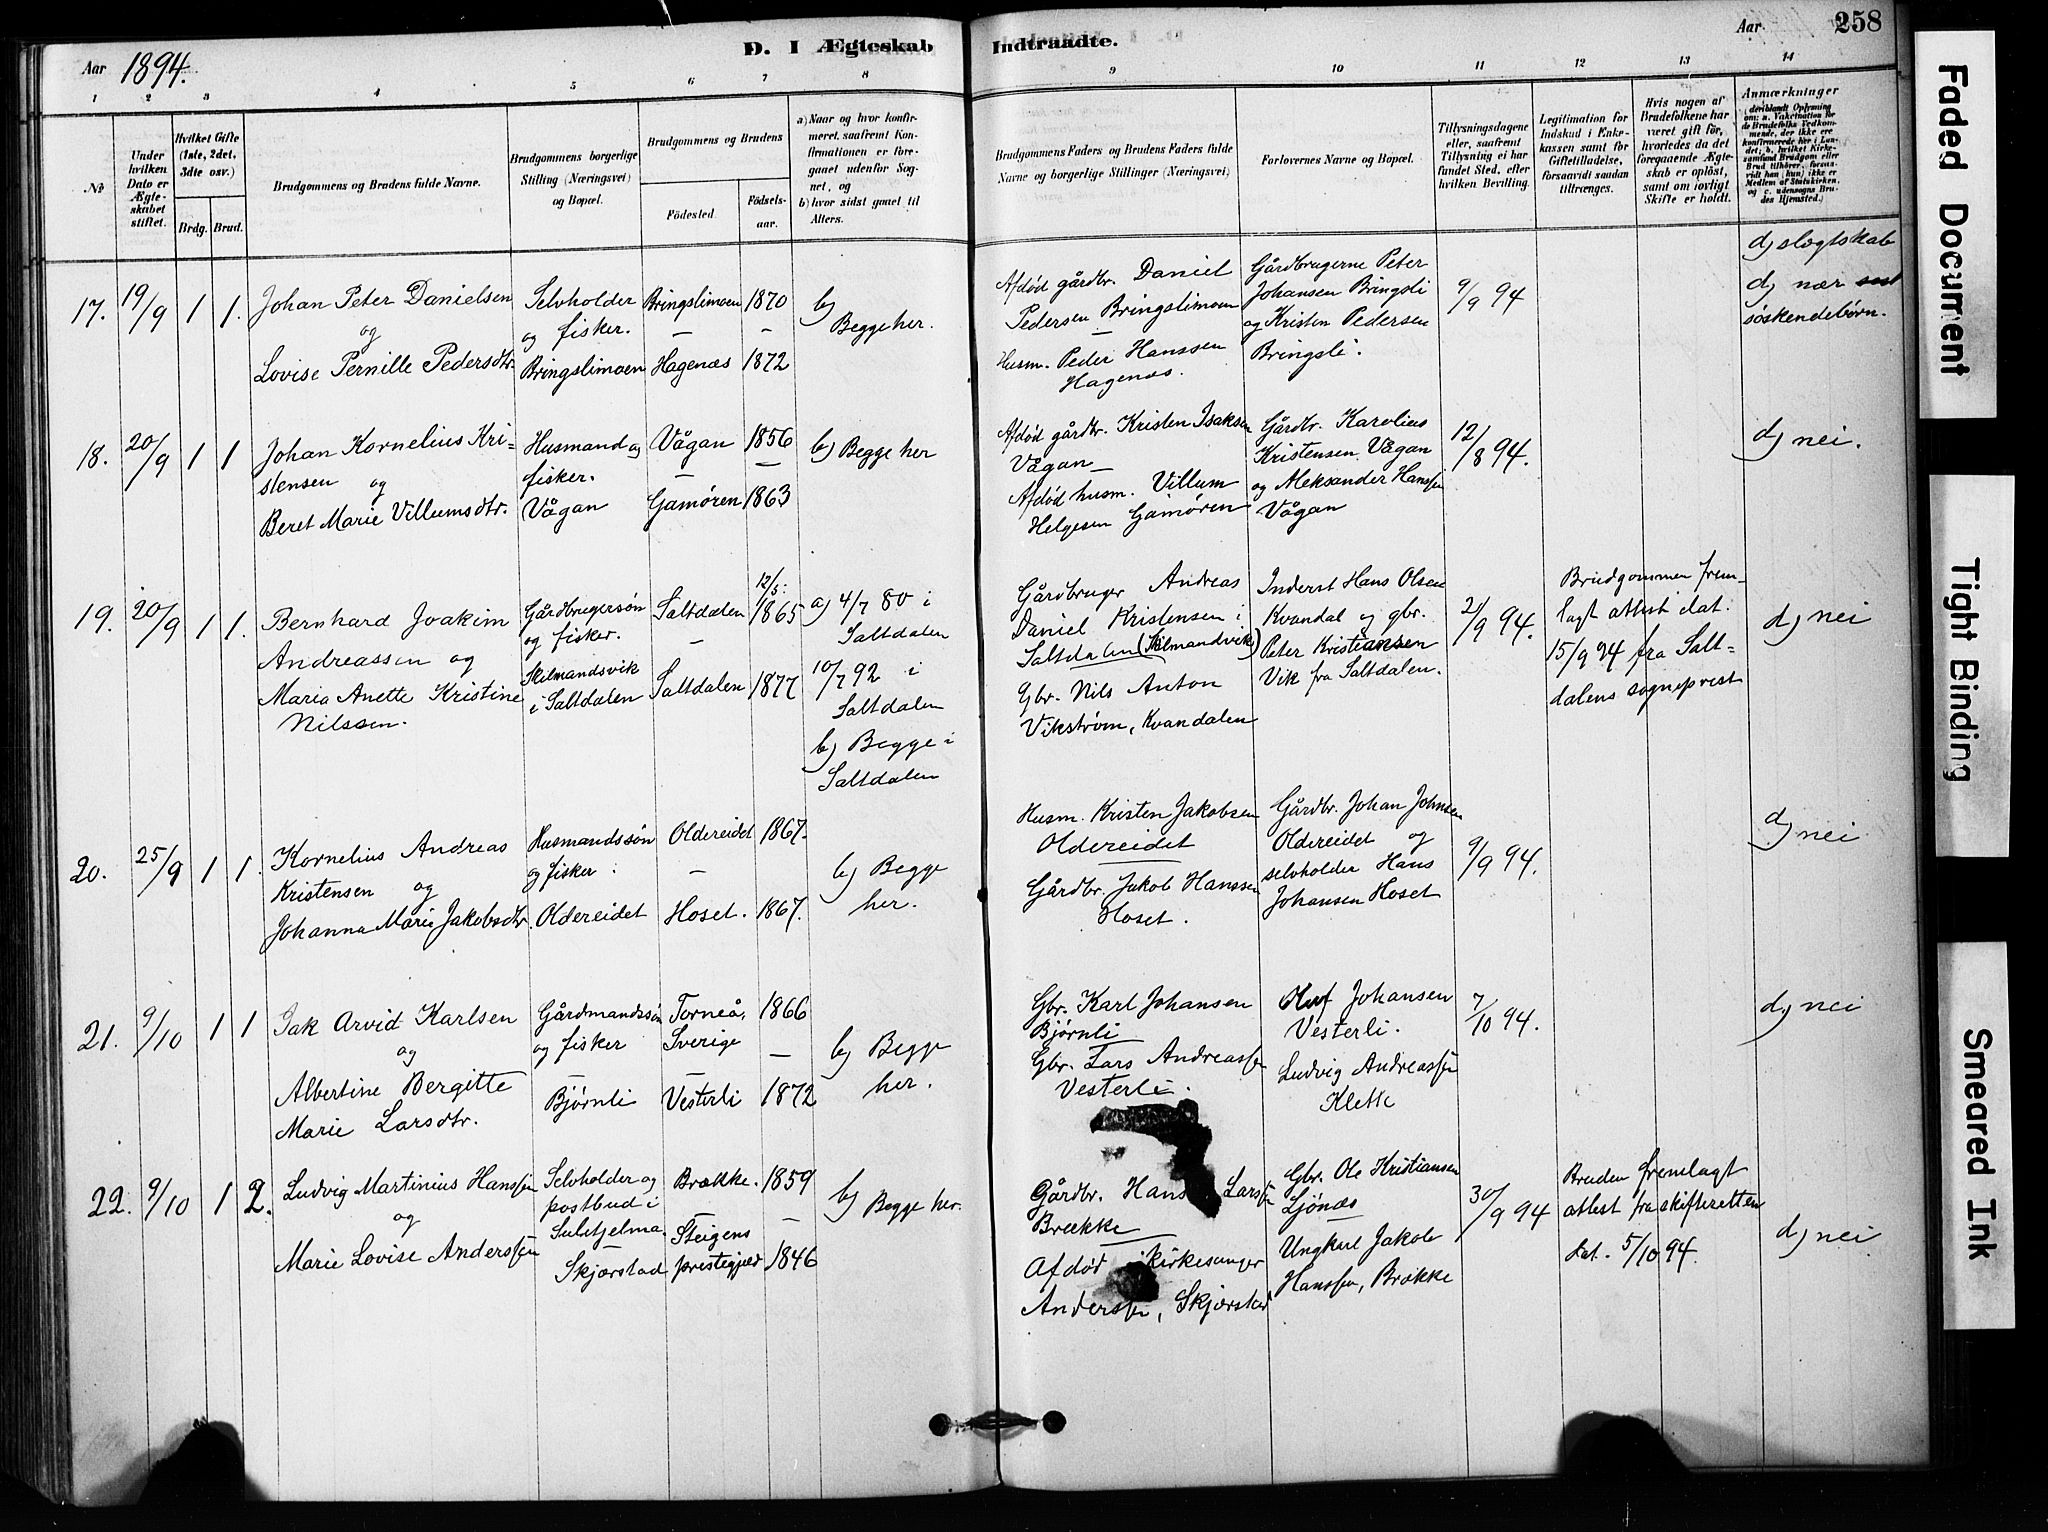 Aar 1894.
D. I Ægteskab Indtraadte.
Aar 258
1 2 3 4 5 6 7 8 9 10 11 12 13 14
No
Under hvilken Dato er Ægteskabet stiftet.
Hvilket Gifte (1ste, 2det, 3dte osv.)
Brdg. Brud.
Brudgommens og Brudens fulde Navne.
Brudgommens borgerlige Stilling (Næringsvei) og Bopæl.
Brudgommens og Brudens
Födested.
Födselsaar.
a) Naar og hvor konfirmeret, saafremt Konfirmationen er foregaaet udenfor Sognet, og
b) hvor sidst gaaet til Alters.
Brudgommens Faders og Brudens Faders fulde Navne og borgerlige Stillinger (Næringsvei)
Forlovernes Navne og Bopæl.
Tillysningsdagene eller, saafremt Tillysning ei har fundet Sted, efter hvilken Bevilling.
Legitimation for Indskud i Enkekassen samt for Giftetilladelse, forsaavidt saadan tiltrænges.
Hvis nogen af Brudefolkene har været gift för, hvorledes da det foregaaende Ægteskab er oplöst, samt om lovligt Skifte er holdt.
Anmærkninger (deriblandt Oplysning om: a. Vakcination for de Brudefolks Vedkommende, der ikke ere konfirmerede her i Landet; b. hvilket Kirkesamfund Brudgom eller Brud tilhører, forsaavidt han (hun) ikke er Medlem af Statskirken, og c. udensogns Brudes Hjemsted.)
17. 19/9 1 1.
Johan Peter Danielsen
og
Lovise Pernille Pedersdtr.
Selvholder
og fisker.
Bringslimoen
Bringslimoen 1870
Hagenæs 1872
b)
Begge her.
Afdød gårdbr. Daniel
Pedersen Bringslimoen
Husm. Peder Hanssen
Hagenæs.
Gårdbrugerne Peter
Johansen Bringsli
og Kristen Pedersen
Bringsli.
9/9 94
d) slægtskab
d) nær
søskendebørn.
18. 20/9 1 1
Johan Kornelius Kri=
stensen og
Beret Marie Villumsdtr.
Husmand og
fisker.
Vågan
Vågan 1856
Gamøren 1863
b) Begge her
Afdød gårdbr. Kristen Isaksen
Vågan
Afdød husm. Villum
Helgesen Gamøren
Gårdbr. Karolius
Kristensen Vågan
og Aleksander Hanssen
Vågan
12/8 94.
d) nei.
19. 20/9 1 1.
Bernhard Joakim
Andreassen og
Maria Anette Kristine
Nilssen.
Gårdbrugersøn
og fisker.
Skilmandsvik
i Saltdalen
Saltdalen 12/5. 1865
Saltdalen 1877
a) 4/7 80 i
Saltdalen
10/7 92 i
Saltdalen
b) Begge i
Saltdalen
Gårdbruger Andreas
Daniel Kristensen i
Saltdalen (Skilmandvik)
Gbr. Nils Anton
Vikstrøm, Kvandalen
Inderst Hans Olsen
Kvandal og gbr.
Peter Kristiansen
Vik fra Saltdalen.
2/9 94.
Brudgommen frem=
lagt attest dat.
15/9 94 fra Salt=
dalens sogneprest
d) nei
20. 25/9 1 1.
Kornelius Andreas
Kristensen og
Johanna Marie Jakobsdtr.
Husmandssøn
og fisker.
Oldereidet
Oldereidet 1867.
Hoset. 1867.
b) Begge
her.
Husm. Kristen Jakobsen
Oldereidet
Gårdbr. Jakob Hanssen
Hoset.
Gårdbr. Johan Johnsen
Oldereidet og
selvholder Hans
Johansen Hoset
9/9 94.
d) nei
21. 9/10 1 1
Isak Arvid Karlsen
og
Albertine Bergitte
Marie Larsdtr.
Gårdmandssøn
og fisker
Bjørnli
Torneå, 1866
Sverige
Vesterli 1872
b) Begge
her.
Gbr. Karl Johansen
Bjørnli
Gbr. Lars Andreassen
Vesterli.
Oluf Johansen
Vesterli.
Ludvig Andreassen
Klette
7/10 94.
d) nei
22. 9/10 1 2.
Ludvig Martinius Hanssen
og
Marie Lovise Anderssen
Selvholder og
postbud i
Sulitjelma.
Skjærstad
Brække. 1859
Steigens
prestegjeld 1846
b) Begge her.
Gårdbr. Hans Larssen
Brække
Afdød kirkesanger
Anderssen, Skjærstad
Gbr. Ole Kristiansen
Ljønæs
Ungkarl Jakob
Hanssen, Brække
30/9 94
Bruden fremlagt
attest fra skifteretten
dat. 5/10 94.
d) nei
Faded Document
Tight Binding
Smeared Ink